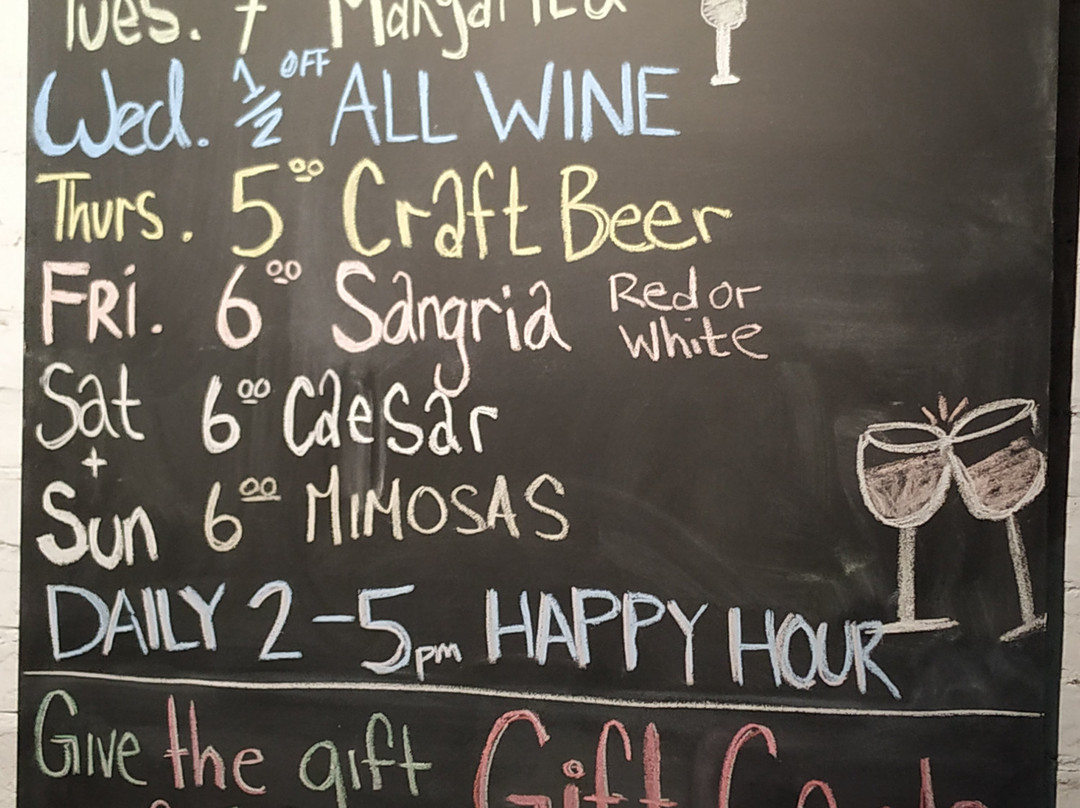 Tues. 7 Margarita
Wed. 1/2 OFF ALL WINE
Thurs. 5⁰⁰ Craft Beer
FRi. 6⁰⁰ Sangria Red or
White
Sat 6⁰⁰ Caesar
+
Sun 6⁰⁰ MIMOSAS
DAILY 2-5pm HAPPY HOUR
Give the gift Gift